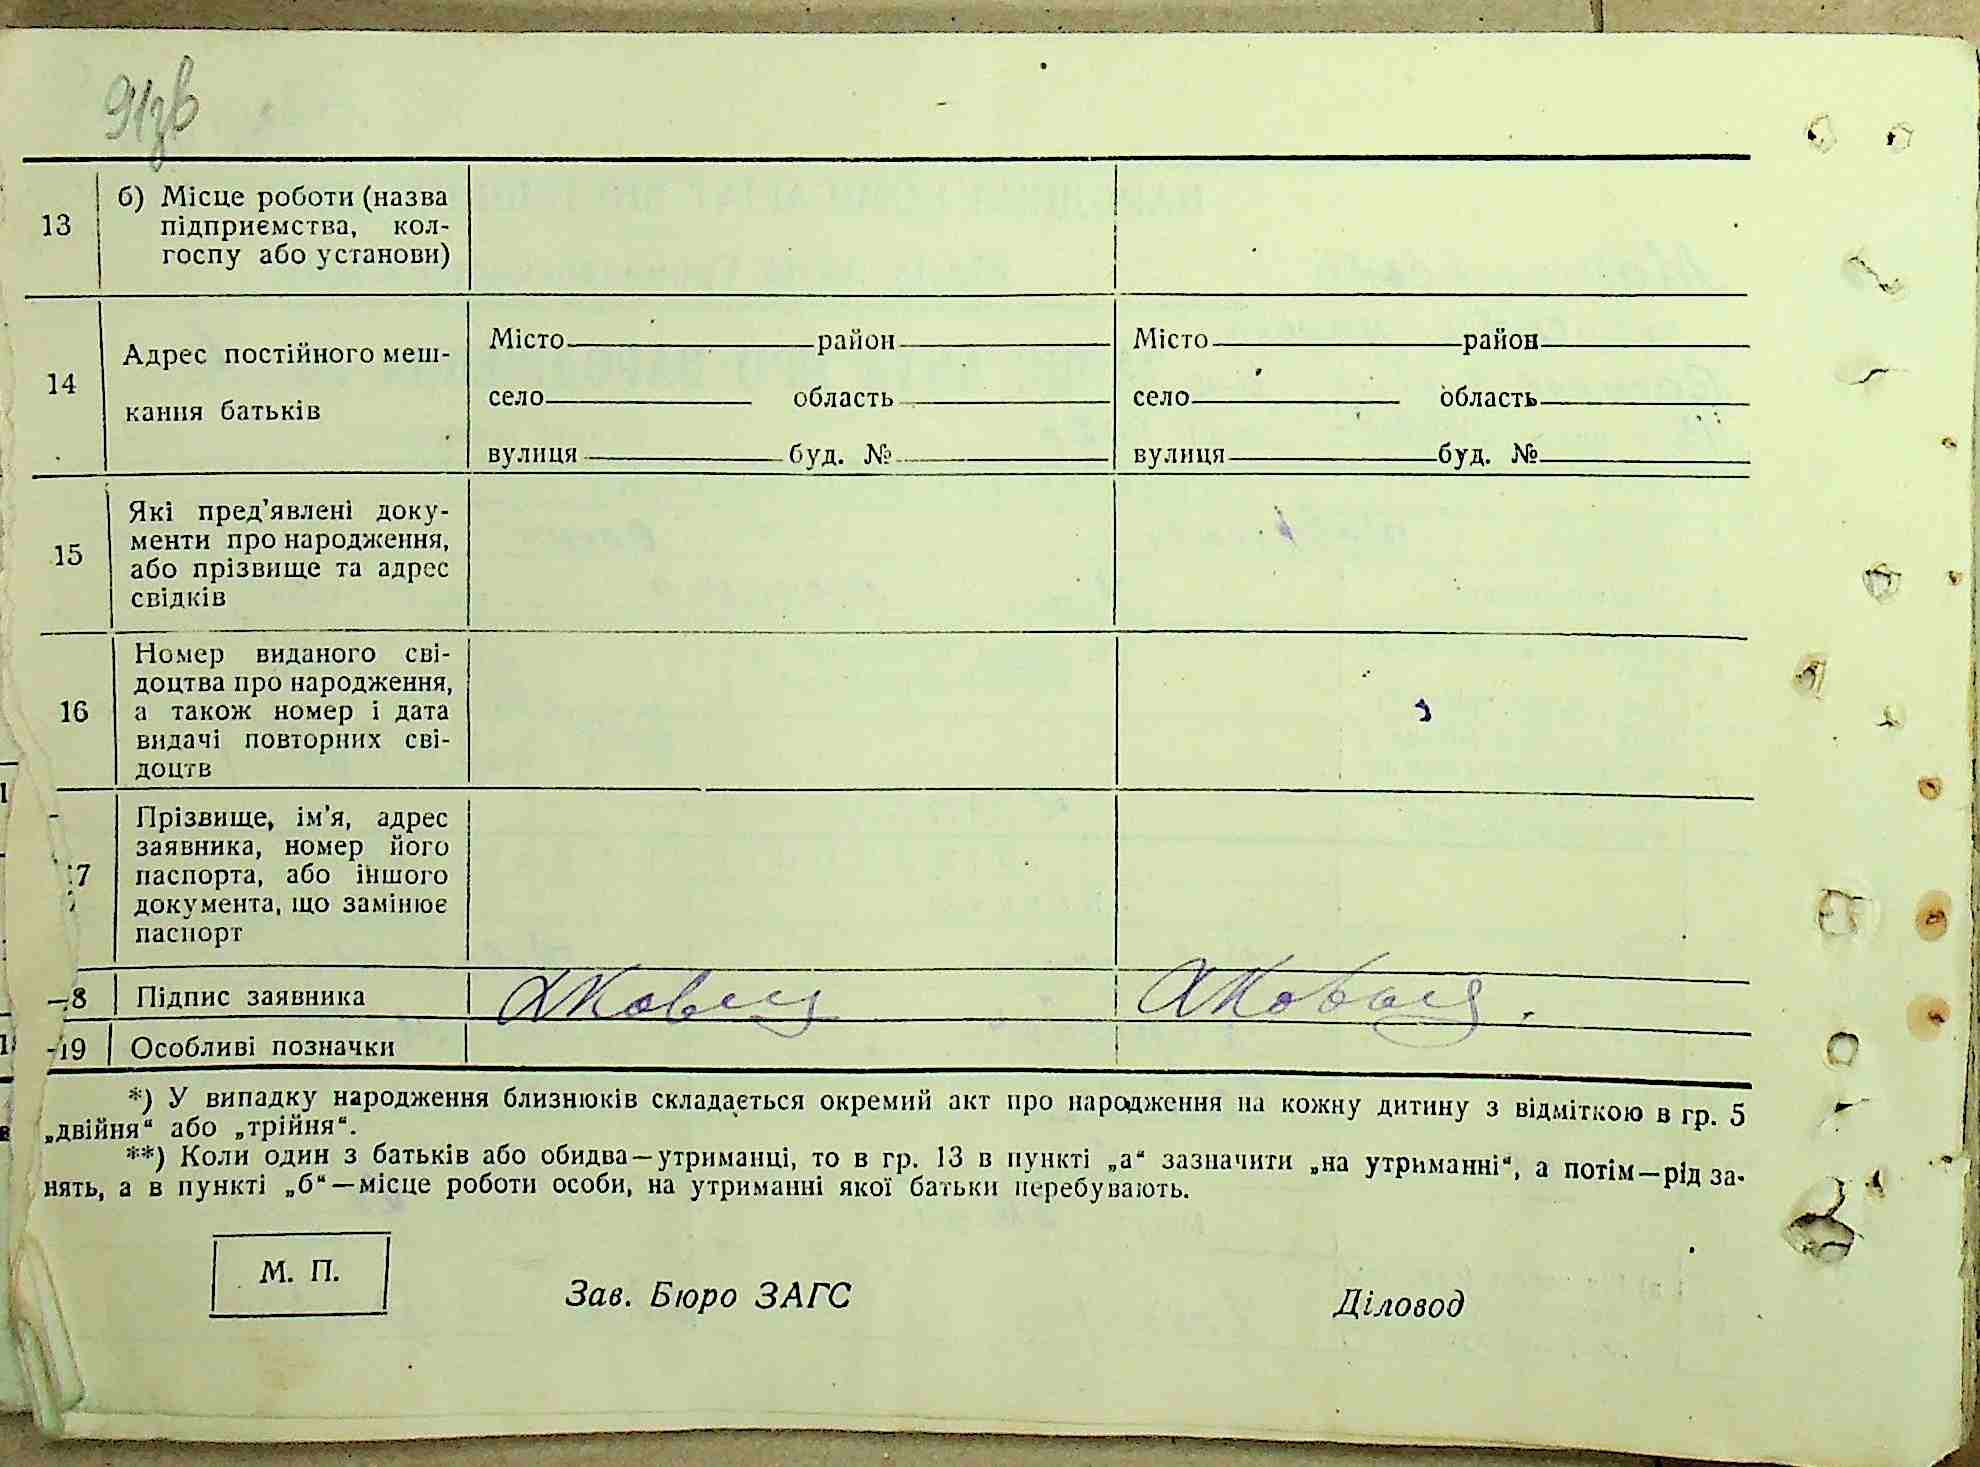 91зв
13 б) Місце роботи (назва
підприємства, кол-
госпу або установи)
14 Адрес постійного меш-
кання батьків
Місто район
село область
вулиця буд. №
Місто район
село область
вулиця буд. №
15 Які пред'явлені доку-
менти про народження,
або прізвище та адрес
свідків
16 Номер виданого сві-
доцтва про народження,
а також номер і дата
видачі повторних сві-
доцтв
17 Прізвище, ім'я, адрес
заявника, номер його
паспорта, або іншого
документа, що замінює
паспорт
18 Підпис заявника
19 Особливі позначки
*) У випадку народження близнюків складається окремий акт про народження на кожну дитину з відміткою в гр. 5
„двійня“ або „трійня“.
**) Коли один з батьків або обидва—утриманці, то в гр. 13 в пункті „а“ зазначити „на утриманні“, а потім—рід за-
нять, а в пункті „б“—місце роботи особи, на утриманні якої батьки перебувають.
М. П.
Зав. Бюро ЗАГС
Діловод